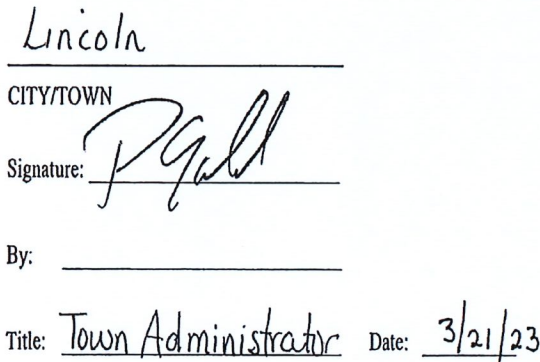 Lincoln
CITY/TOWN
Signature:
By:
Title: Town Administrator Date: 3/21/23